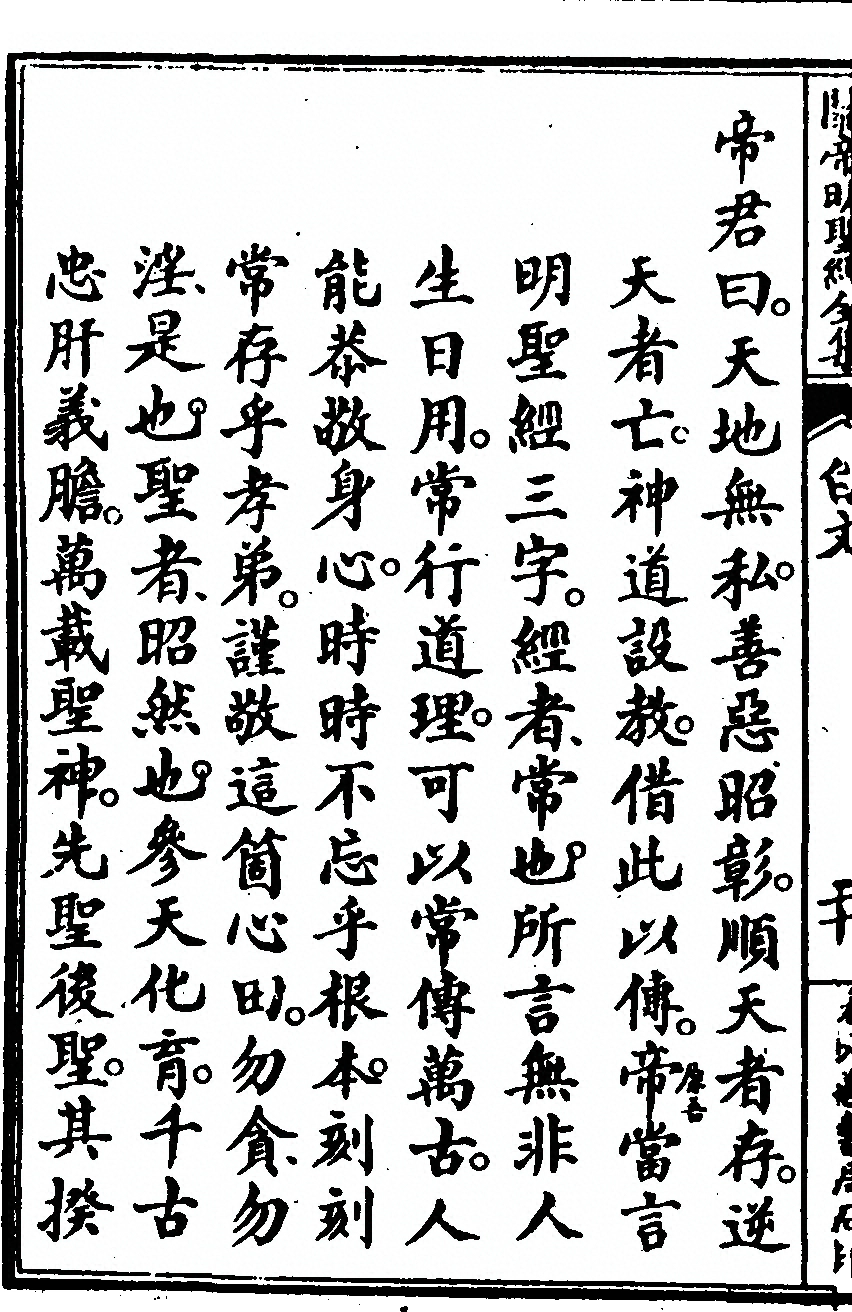 帝君曰。天地無私。善惡昭彰。順天者存。逆
天者亡。神道設教。借此以傳。帝原吾當言
明聖經三字。經者、常也。所言無非人
生日用。常行道理。可以常傳萬古。人
能恭敬身心。時時不忘乎根本。刻刻
常存乎孝弟。謹敬這箇心田。勿貪、勿
淫、是也。聖者、昭然也。參天化育。千古
忠肝義膽。萬載聖神。先聖後聖。其揆
關帝明聖經全集
白文